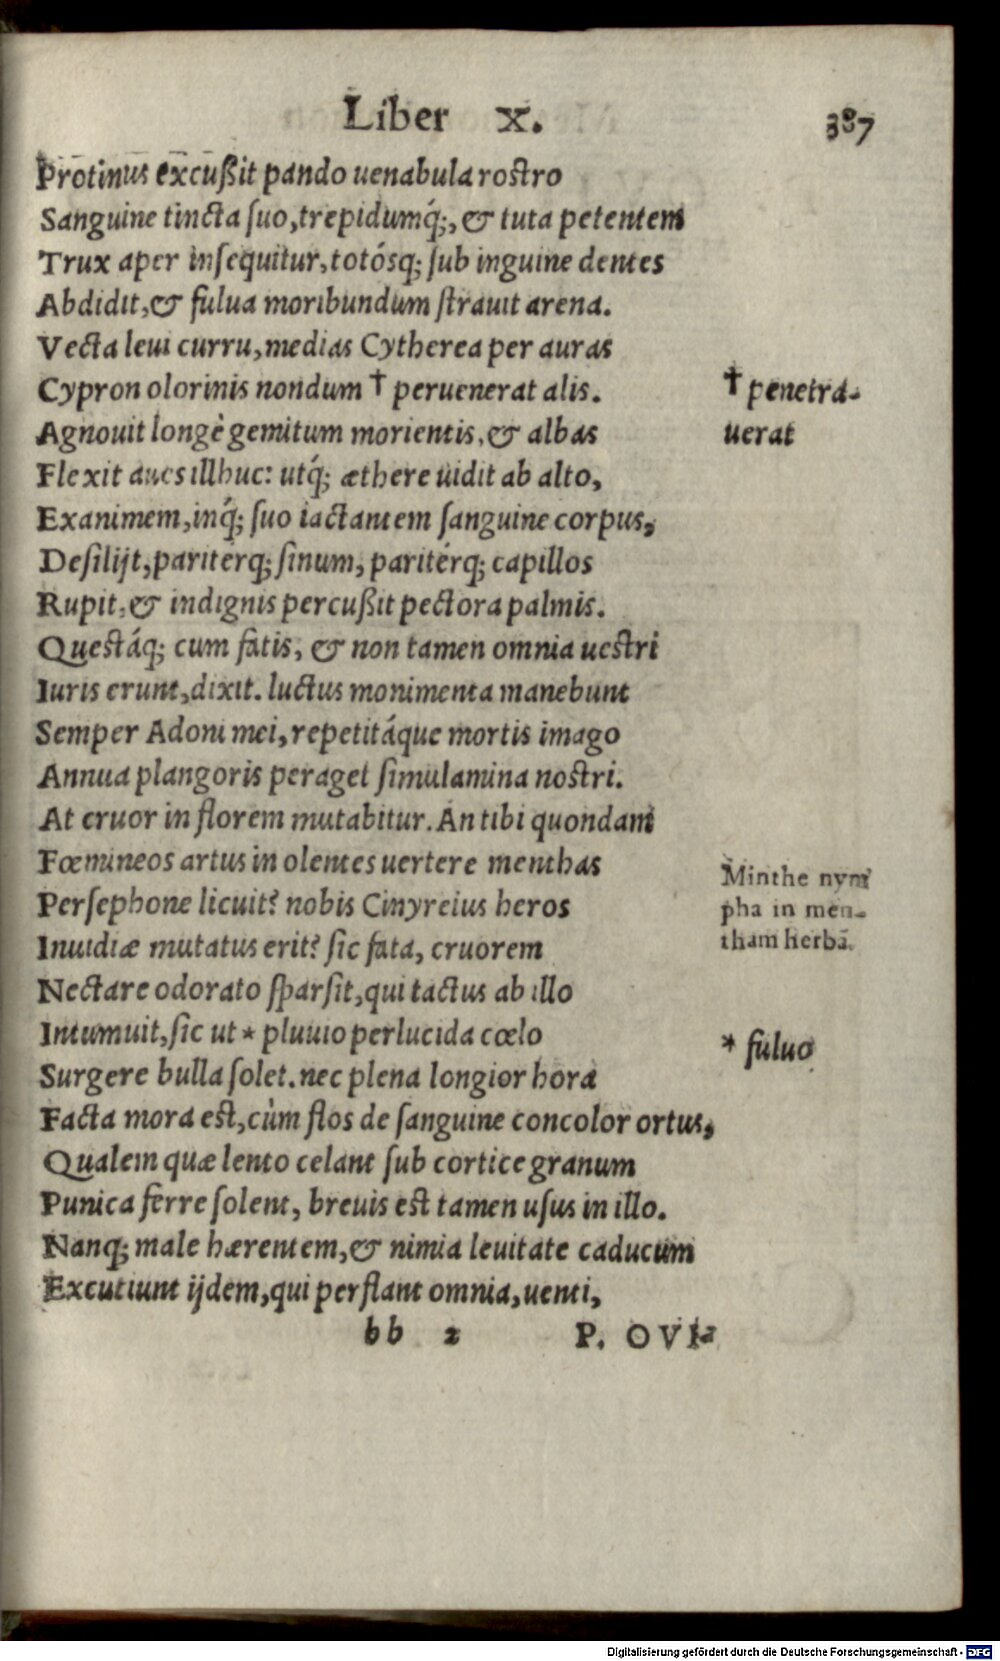 Liber X. 387
Protinus excußit pando uenabula rostro
Sanguine tincta ſuo,trepidumq́;,& tuta petentem
Trux aper inſequitur,totósq; ſub inguine dentes
Abdidit,& fulua moribundum ſtrauit arena.
Vecta leui curru,medias Cytherea per auras
Cypron olorinis nondum † peruenerat alis.
† penetra-
uerat
Agnouit longè gemitum morientis,& albas
Flexit aues illhuc: utq́; æthere uidit ab alto,
Exanimem,inq́; ſuo iactantem ſanguine corpus,
Deſilijt,paritérq; ſinum, paritérq; capillos
Rupit,& indignis percußit pectora palmis.
Questáq; cum fatis, & non tamen omnia uestri
Iuris erunt,dixit. luctus monimenta manebunt
Semper Adoni mei,repetitáque mortis imago
Annua plangoris peraget ſimulamina noſtri.
At cruor in florem mutabitur. An tibi quondam
Fœmineos artus in olentes uertere menthas
Perſephone licuit? nobis Cinyreius heros
Inuidiæ mutatus erit? ſic fata, cruorem
Minthe nym
pha in men-
tham herbā.
Nectare odorato ſparſit,qui tactus ab illo
Intumuit,ſic ut * pluuio perlucida cœlo
* fuluo
Surgere bulla ſolet.nec plena longior hora
Facta mora eſt,cùm flos de ſanguine concolor ortus,
Qualem quæ lento celant ſub cortice granum
Punica ferre ſolent, breuis eſt tamen uſus in illo.
Nanq; male hærentem,& nimia leuitate caducum
Excutiunt ijdem,qui perflant omnia,uenti,
bb 2 P. OVI-
Digitalisierung gefördert durch die Deutsche Forschungsgemeinschaft - DFG